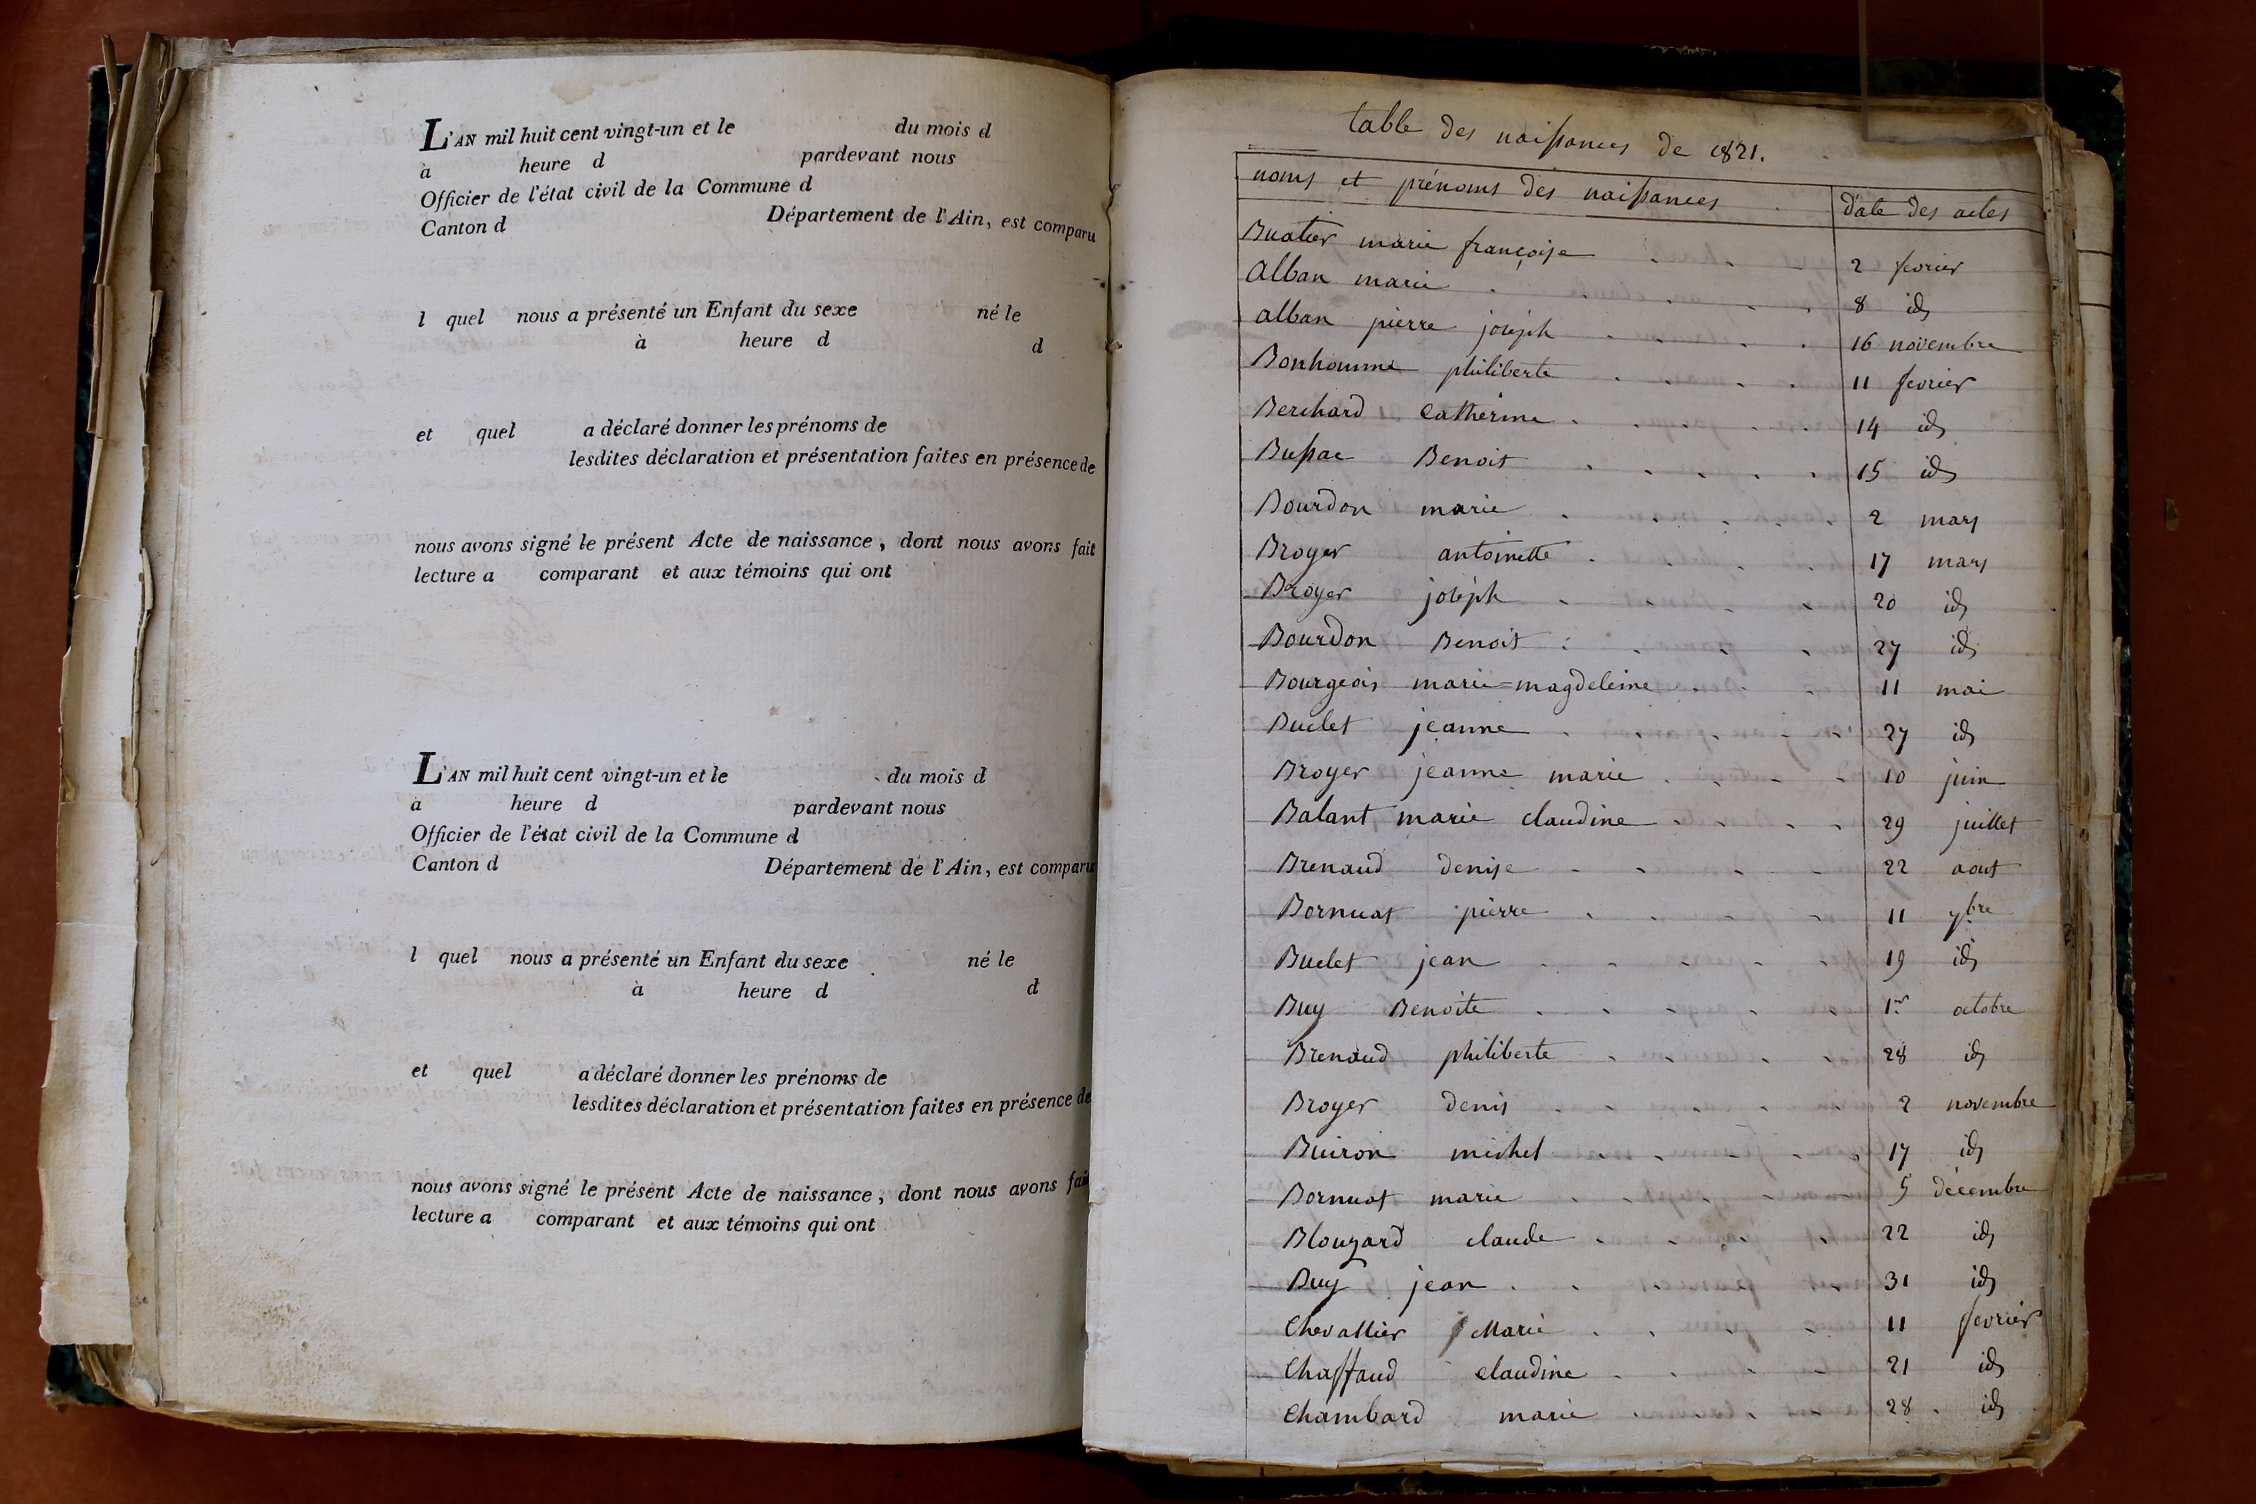 L'AN mil huit cent vingt-un et le du mois d
à heure d pardevant nous
Officier de l'état civil de la Commune d
Canton d Département de l'Ain, est comparu
l quel nous a présenté un Enfant du sexe né le
à heure d d
et quel a déclaré donner les prénoms de
lesdites déclaration et présentation faites en présence de
nous avons signé le présent Acte de naissance, dont nous avons fait
lecture a comparant et aux témoins qui ont
L'AN mil huit cent vingt-un et le du mois d
à heure d pardevant nous
Officier de l'état civil de la Commune d
Canton d Département de l'Ain, est comparu
l quel nous a présenté un Enfant du sexe né le
à heure d d
et quel a déclaré donner les prénoms de
lesdites déclaration et présentation faites en présence de
nous avons signé le présent Acte de naissance, dont nous avons fait
lecture a comparant et aux témoins qui ont
table des naissances de 1821.
noms et prénoms des naissances date des actes
Buatier marie françoise 2 fevrier
Alban marie 8 id
alban pierre joseph 16 novembre
Bonhomme philiberte 11 fevrier
Berchard Catherine 14 id
Bussac Benoit 15 id
Bourdon marie 2 mars
Broyer antoinette 17 mars
Broyer joseph 20 id
Bourdon Benoit 27 id
Bourgeois marie=magdeleine 11 mai
Buclet jeanne 27 id
Broyer jeanne marie 10 juin
Balant marie claudine 29 juillet
Brenaud denise 22 aout
Bornuat pierre 11 7bre
Buclet jean 19 id
Buy Benoite 1er octobre
Brenaud philiberte 28 id
Broyer denis 2 novembre
Buiron michel 17 id
Bornuat marie 5 décembre
Blouzard claude 22 id
Buy jean 31 id
Chevallier Marie 11 fevrier
Chaffaud Claudine 21 id
Chambard marie 28 id